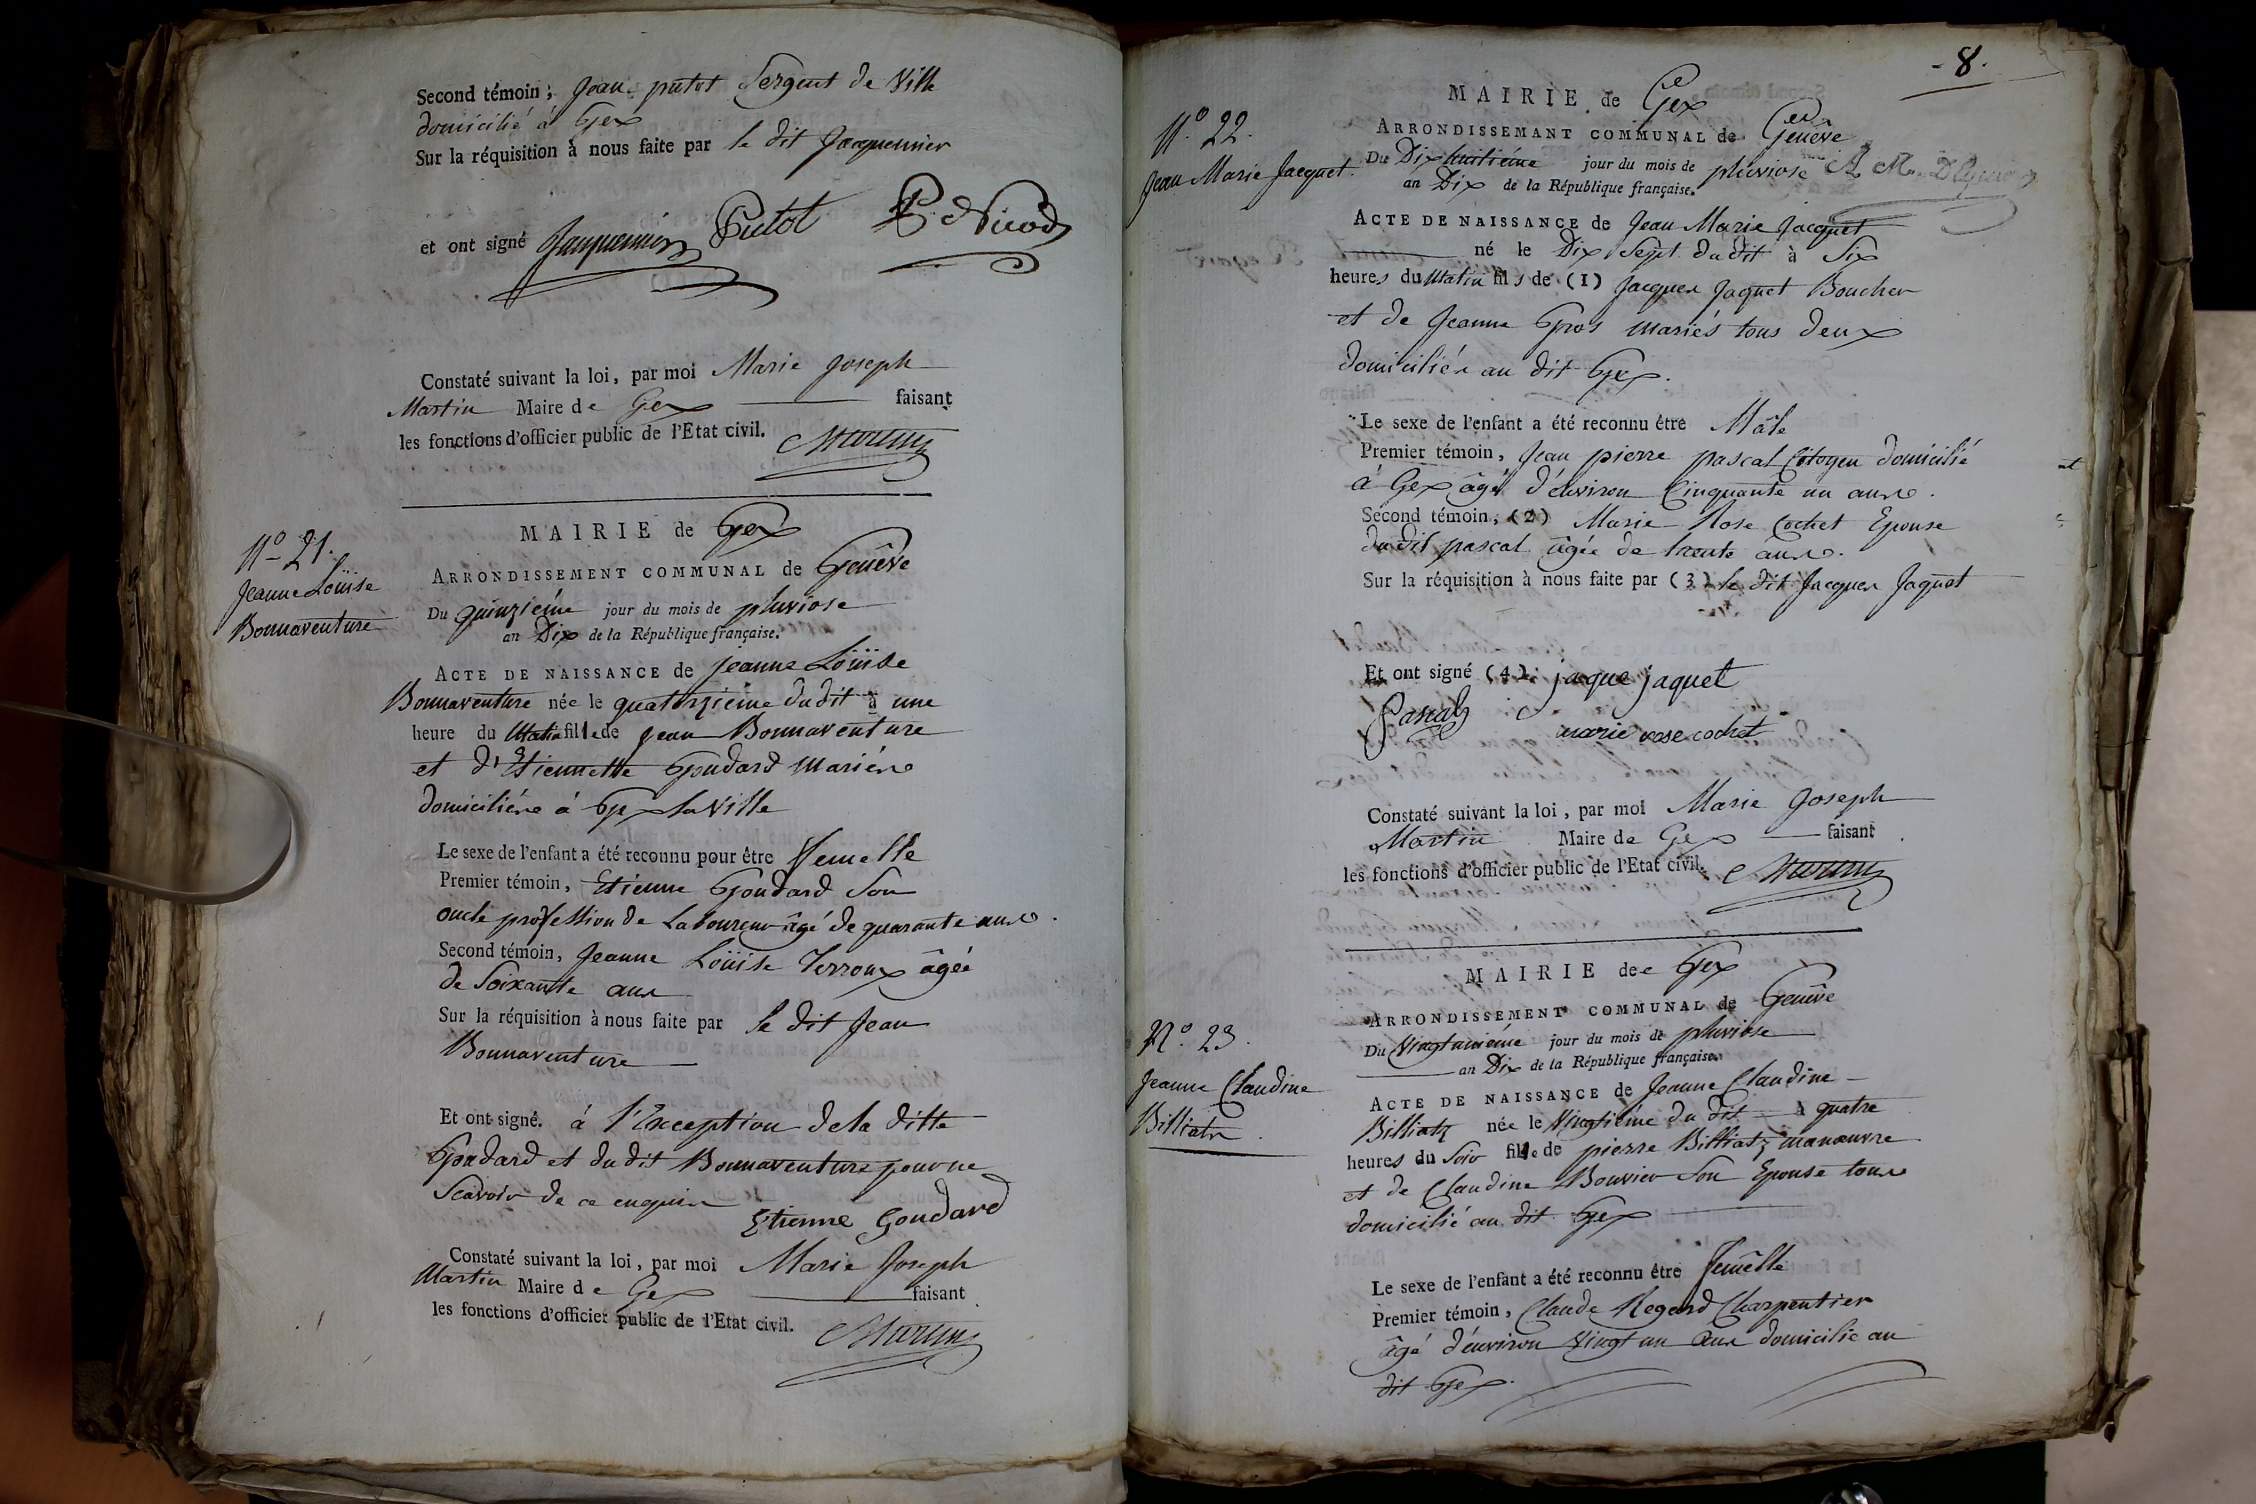 Second témoin, Jean putot Sergent de Ville
domicilié à Gex
Sur la réquisition à nous faite par le dit Jacquemier
et ont signé Jacquemier Putot P. Nicod
Constaté suivant la loi, par moi Marie Joseph
Martin Maire de Gex faisant
les fonctions d'officier public de l'Etat civil. Martin
N.o 21.
Jeanne Loüise
Bonnaventure
MAIRIE de Gex
ARRONDISSEMENT COMMUNAL de Genêve
Du quinziéme jour du mois de pluviose
an Dix de la République française.
ACTE DE NAISSANCE de jeanne Loüise
Bonnaventure née le quatorziéme du dit à une
heure du Matin fille de Jean Bonnaventure
et d'Etiennette Goudard mariés
domiciliés à Gex la Ville
Le sexe de l'enfant a été reconnu pour être femelle
Premier témoin, Etienne Goudard Son
oncle profession de Laboureur âgé de quarante ans.
Second témoin, Jeanne Loüise Terroux âgée
de Soixante ans
Sur la réquisition à nous faite par le dit Jean
Bonnaventure
Et ont signé. à l'Exception de la ditte
Goudard et du dit Bonnaventure pour ne
Scavoir de ce enquis
Etienne Goudard
Constaté suivant la loi, par moi Marie Joseph
Martin Maire de Gex faisant
les fonctions d'officier public de l'Etat civil. Martin
- 8.
N.o 22.
Jean Marie Jacquet.
MAIRIE de Gex
ARRONDISSEMANT COMMUNAL de Genêve
Du Dix huitiéme jour du mois de pluviose
an Dix de la République française.
ACTE DE NAISSANCE de Jean Marie Jacquet
né le Dix Sept du dit à Six
heures du Matin fils de (1) Jacques Jaquet Boucher
et de Jeanne Gros mariés tous deux
domiciliés au dit Gex.
Le sexe de l'enfant a été reconnu être Mâle
Premier témoin, Jean pierre pascal Citoyen domicilié
à Gex âgé d'environ Cinquante un ans.
Second témoin, (2) Marie Rose Cochet Epouse
du dit pascal âgée de trente ans.
Sur la réquisition à nous faite par (3) le dit Jacques Jaquet
Et ont signé (4) jaque jaquet
Pascal
marie rose cochet
Constaté suivant la loi, par moi Marie Joseph
Martin Maire de Gex faisant
les fonctions d'officier public de l'Etat civil. Martin
N.o 23.
Jeanne Claudine
Billiatz
MAIRIE de Gex
ARRONDISSEMENT COMMUNAL de Genêve
Du Vingtuniéme jour du mois de pluviose
an Dix de la République française.
ACTE DE NAISSANCE de Jeanne Claudine
Billiatz née le Vingtiéme du dit à quatre
heures du Soir fille de pierre Billiatz manœuvre
et de Claudine Bouvier Son Epouse tous
domicilié au dit Gex
Le sexe de l'enfant a été reconnu être femêlle
Premier témoin, Claude Regard Charpentier
âgé d'environ Vingt un ans domicilié au
dit Gex.